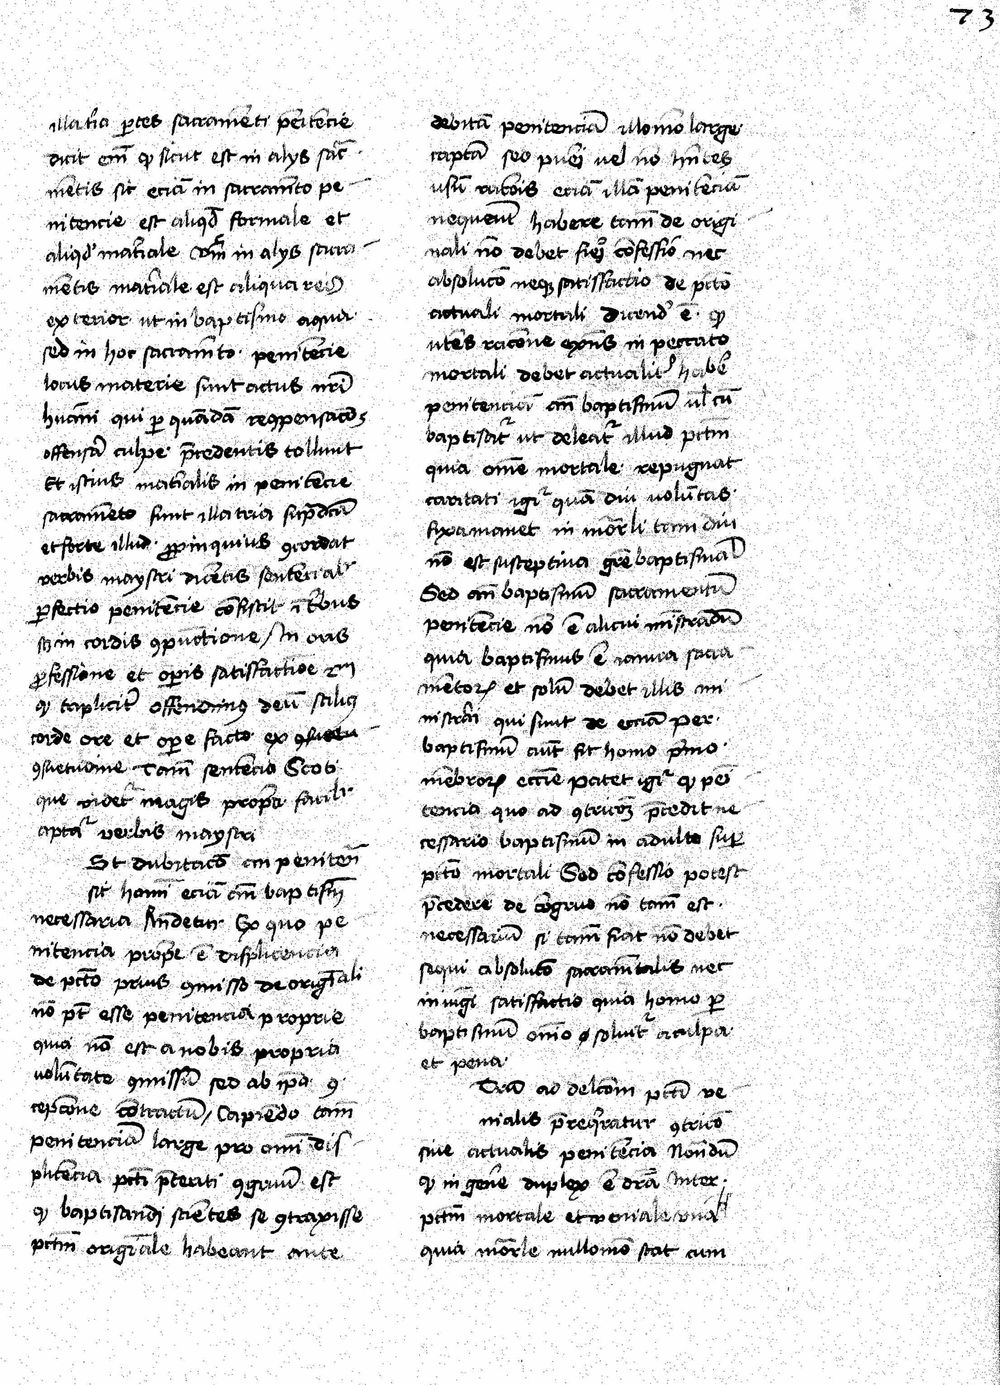 73
illa tria partes sacramēti pēitēcie
dicit em̄ ꝙ sicut est in alys sac̄
mētis sic eciā in sacramēto pe
nitencie est aliqd̄ formale et
aliqd̄ mat̄iale Vn̄ in alys sacra
mētis mat̄iale est aliqua res
exterior ut in baptismo aqua
sed in hoc sacram̄to penitēcie
locus materie sunt actus nr̄i
hūani qui ꝑ quādā recōpensacōȝ
offensā culpe p̄cedentis tollunt
Et istius mat̄ialis in penitēcie
sacramēto sunt illa tria sup̄dc̄a
et forte illud ꝓpinquius ꝯcordat
verbis maystri dicētis sentēcialr̄
ꝑfectio penitēcie cōsistit ī t̄bus
sꝫ in cordis ꝯpūctione / In oris
ꝓfessione et oꝑis satisfactiōe
ꝙ triplicit̄ offendimꝰ deū scilicꝫ
corde ore et oꝑe facto ex
ꝯsuetudine Tam̄ sentēcia Scoti
que videt̄ magis propria facilr̄
aptat̄ verbis maystri
St dubitacō an peniten̄
sit homī eciā an̄ baptism̄
necessaria Rn̄detur Ex quo pe
nitencia propīe ē displicencia
de pct̄o prius ꝯmisso de origīali
nō pt̄ esse penitencia proprie
quia nō est a nobis propria
volūtate ꝯmissū sed ab ip̄a ꝯ
cepcōne cōtractū / Capiēdo tam̄
penitenciā large pro omī dis
plicēcia pct̄i p̄teriti ꝯgruū est
ꝙ baptisandi sciētes se ꝯtraxisse
pct̄m origīale habeant ante
debitā penitenciā illomō large
captā sed pueri vel nō hn̄tes
usū racōis eciā illā penitēciā
nequeūt habere tam̄ de origi
nali nō debet fieri cōfessio nec
absolucō neqꝫ satisfactio de pct̄o
actuali mortali Dicend̄ ē ꝙ
utēs racōne exn̄s in peccato
mortali debet actualit̄ habē
penitenciā an̄ baptismū ul̄ cū
baptisat̄ ut deleat̄ illud pct̄m
quia om̄e mortale repugnat
caritati igit̄ quā diu volūtas
fixa manet in mor̄li tam diu
nō est susceptiva gr̄e baptismal̄
Sed an̄ baptismū sacramentū
penitēcie nō ē alicui mīstrandū
quia baptismus ē ianua sacra
mentoꝝ et solū debet illis mi
nistrari qui sunt de eccīa per
baptismū aūt fit homo p̄mo
mēbroꝝ eccīe patet igit̄ ꝙ pēi
tencia quo ad ꝯtricōȝ p̄cedit ne
cessario baptismū in adulto suꝑ
pct̄o mortali Sed cōfessio potest
p̄cedere de cōgruo nō tam̄ est
necessariū si tam̄ fiat nō debet
sequi absolucō sacram̄talis nec
iniūgi satisfactio quia homo ꝑ
baptismū om̄io absolvit̄ a culpa
et pena
Utrū ad delcōm pct̄i ve
nialis p̄reqratur ꝯtricō
sive actualis penitēcia Notandū
ꝙ in gen̄e duplex ē dr̄ia Inter
pct̄m mortale et veniale una
quia mor̄le nullomō stat cum